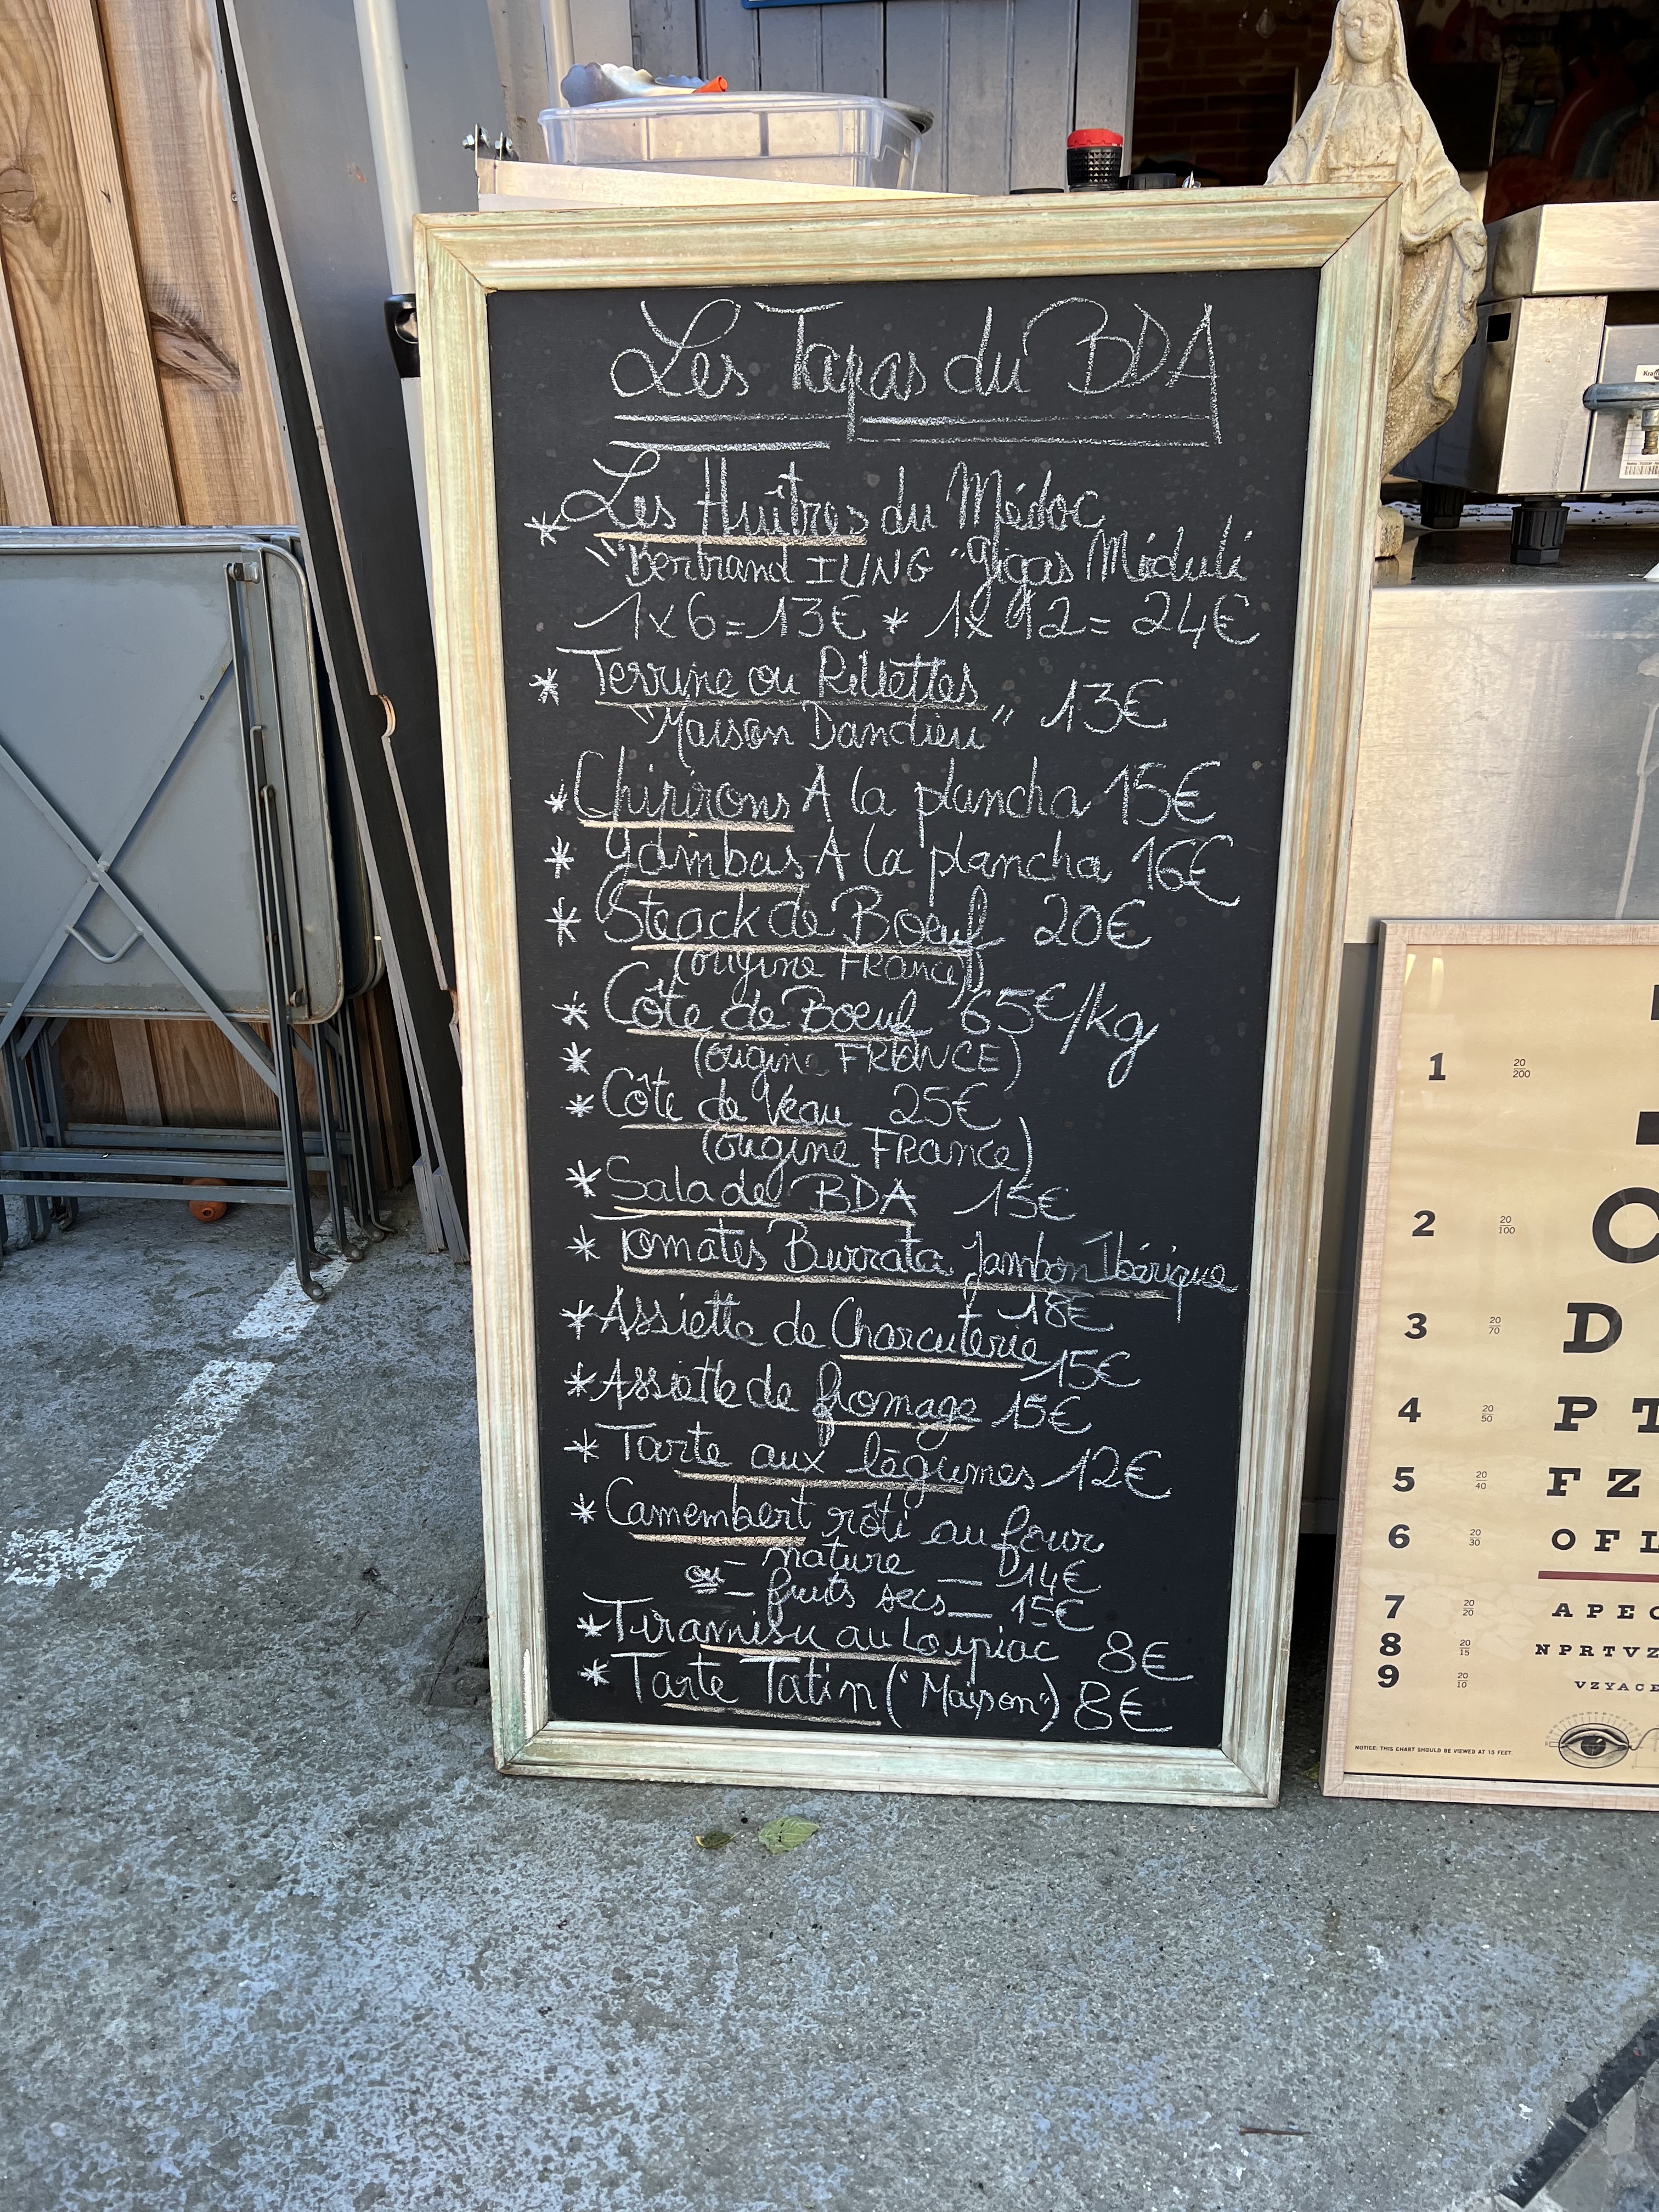 Les Tapas du BDA
* Les Huîtres du Médoc
"Bertrand IUNG" Gigas Méduli
1x6=13€ * 1x12=24€
* Terrine ou Rillettes 13€
"Maison Dandieu"
* Chipirons A la plancha 15€
* Gambas A la plancha 16€
* Steack de Boeuf 20€
(origine FRance)
* Côte de Boeuf 65€/kg
* (origine FRANCE)
* Côte de Veau 25€
(origine FRance)
* Salade BDA 15€
* Tomates Burrata Jambon Ibérique
18€
* Assiette de Charcuterie 15€
* Assiette de fromage 15€
* Tarte aux légumes 12€
* Camembert rôti au four
- nature - 14€
ou - fruits secs - 15€
* Tiramisu au Loupiac 8€
* Tarte Tatin ("Maison") 8€
1 20/200
2 20/100 O
3 20/70 D
4 20/50 P T
5 20/40 F Z
6 20/30 O F L
7 20/20 A P E C
8 20/15 N P R T V Z
9 20/10 V Z Y A C E
NOTICE: THIS CHART SHOULD BE VIEWED AT 15 FEET.